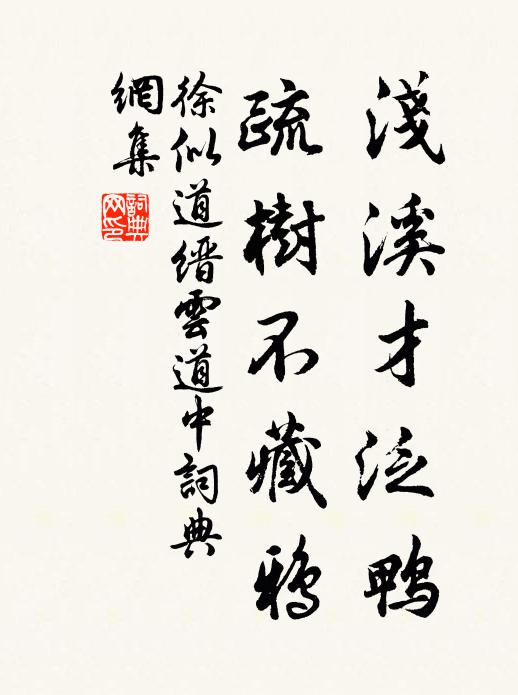 淺溪才泛鴨
疏樹不藏鴉
徐似道縉雲道中詞典
網集
詞典
网印